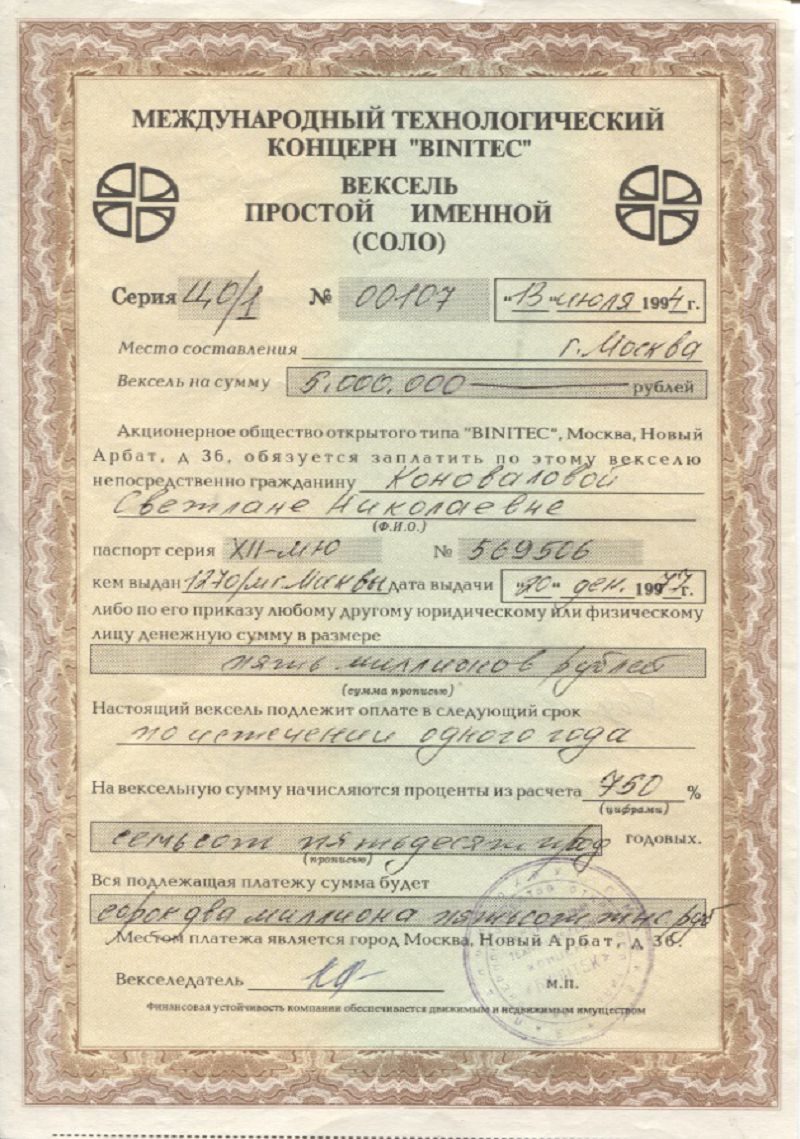 МЕЖДУНАРОДНЫЙ ТЕХНОЛОГИЧЕСКИЙ
КОНЦЕРН "BINITEC"
ВЕКСЕЛЬ
ПРОСТОЙ ИМЕННОЙ
(СОЛО)
Серия ЦО/1 № 00107 "13" июля 1994 г.
Место составления г. Москва
Вексель на сумму 5.000.000 рублей
Акционерное общество открытого типа "BINITEC", Москва, Новый
Арбат, д 36, обязуется заплатить по этому векселю
непосредственно гражданину Коноваловой
Светлане Николаевне
(Ф.И.О.)
паспорт серия XII-МЮ № 569506
кем выдан 127 о/м г. Москвы дата выдачи "20" дек. 1977 г.
либо по его приказу любому другому юридическому или физическому
лицу денежную сумму в размере
пять миллионов рублей
(сумма прописью)
Настоящий вексель подлежит оплате в следующий срок
по истечении одного года
На вексельную сумму начисляются проценты из расчета 750 %
(цифрами)
семьсот пятьдесят годовых.
(прописью)
Вся подлежащая платежу сумма будет
сорок два миллиона пятьсот тыс руб
Местом платежа является город Москва, Новый Арбат, д 36.
Векселедатель м.п.
Финансовая устойчивость компании обеспечивается движимым и недвижимым имуществом